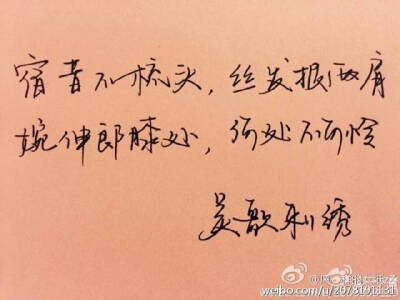 宿昔不梳头，丝发披两肩
婉伸郎膝处，何处不可怜
吴歌利绣
weibo.com/u/2073191131